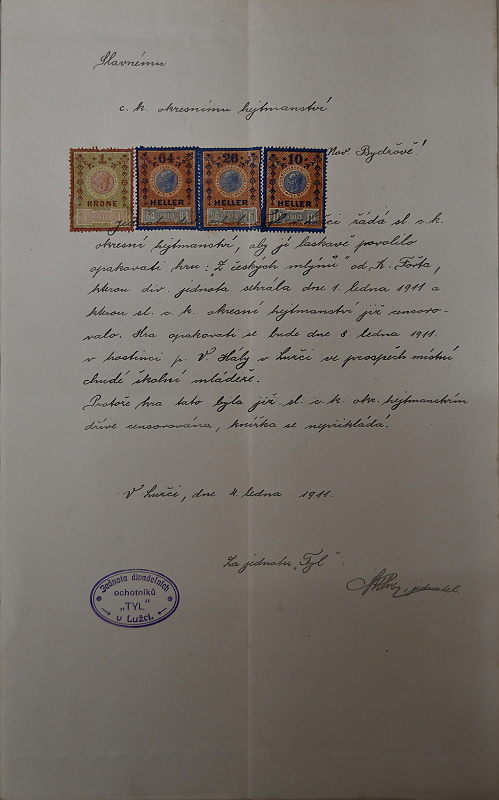 Slavnému
c. k. okresnímu hejtmanství
Nov Bydžově!
1
KRONE
64
HELLER
64 1910 64
26
HELLER
26 1910 26
10
HELLER
1910
Lužci žádá sl. c. k.
okresní hejtmanství, aby jí laskavě povolilo
opakovati hru: "Z českých mlýnů" od K. Fořta,
kterou div. jednota sehrála dne 1. ledna 1911 a
kterou sl. c. k. okresní hejtmanství již censoro-
valo. Hra opakovati se bude dne 8. ledna 1911.
v hostinci p. V. Hály v Lužci ve prospěch místní
chudé školní mládeže.
Protože hra tato byla již sl. c. k. okr. hejtmanstvím
dříve censurována, knížka se nepřikládá.
V Lužci, dne 4. ledna 1911.
Za jednotu „Tyl"
jednatel.
Jednota divadelních
ochotníků
„TYL"
v Lužci.